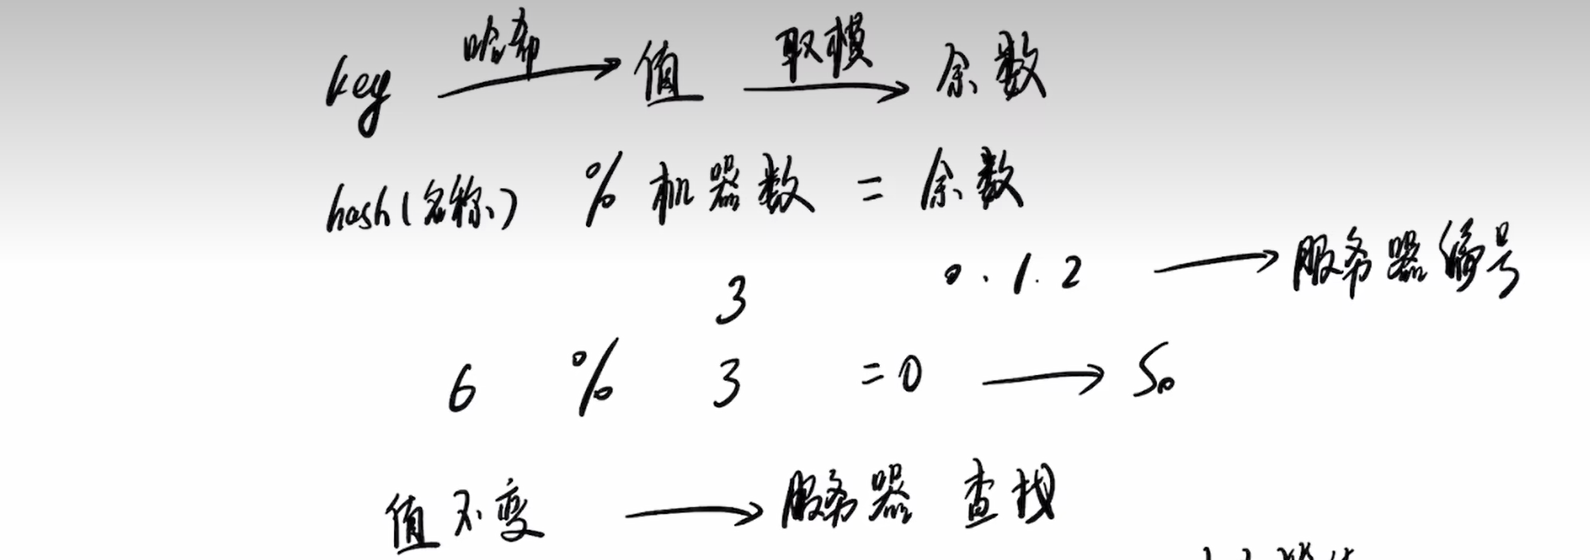 key 哈希 值 取模 余数
hash(名称) % 机器数 = 余数
3 0.1.2 服务器编号
6 % 3 = 0 S0
值不变 服务器 查找